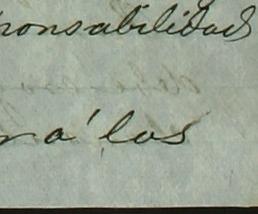 ponsabilidad
ra' los